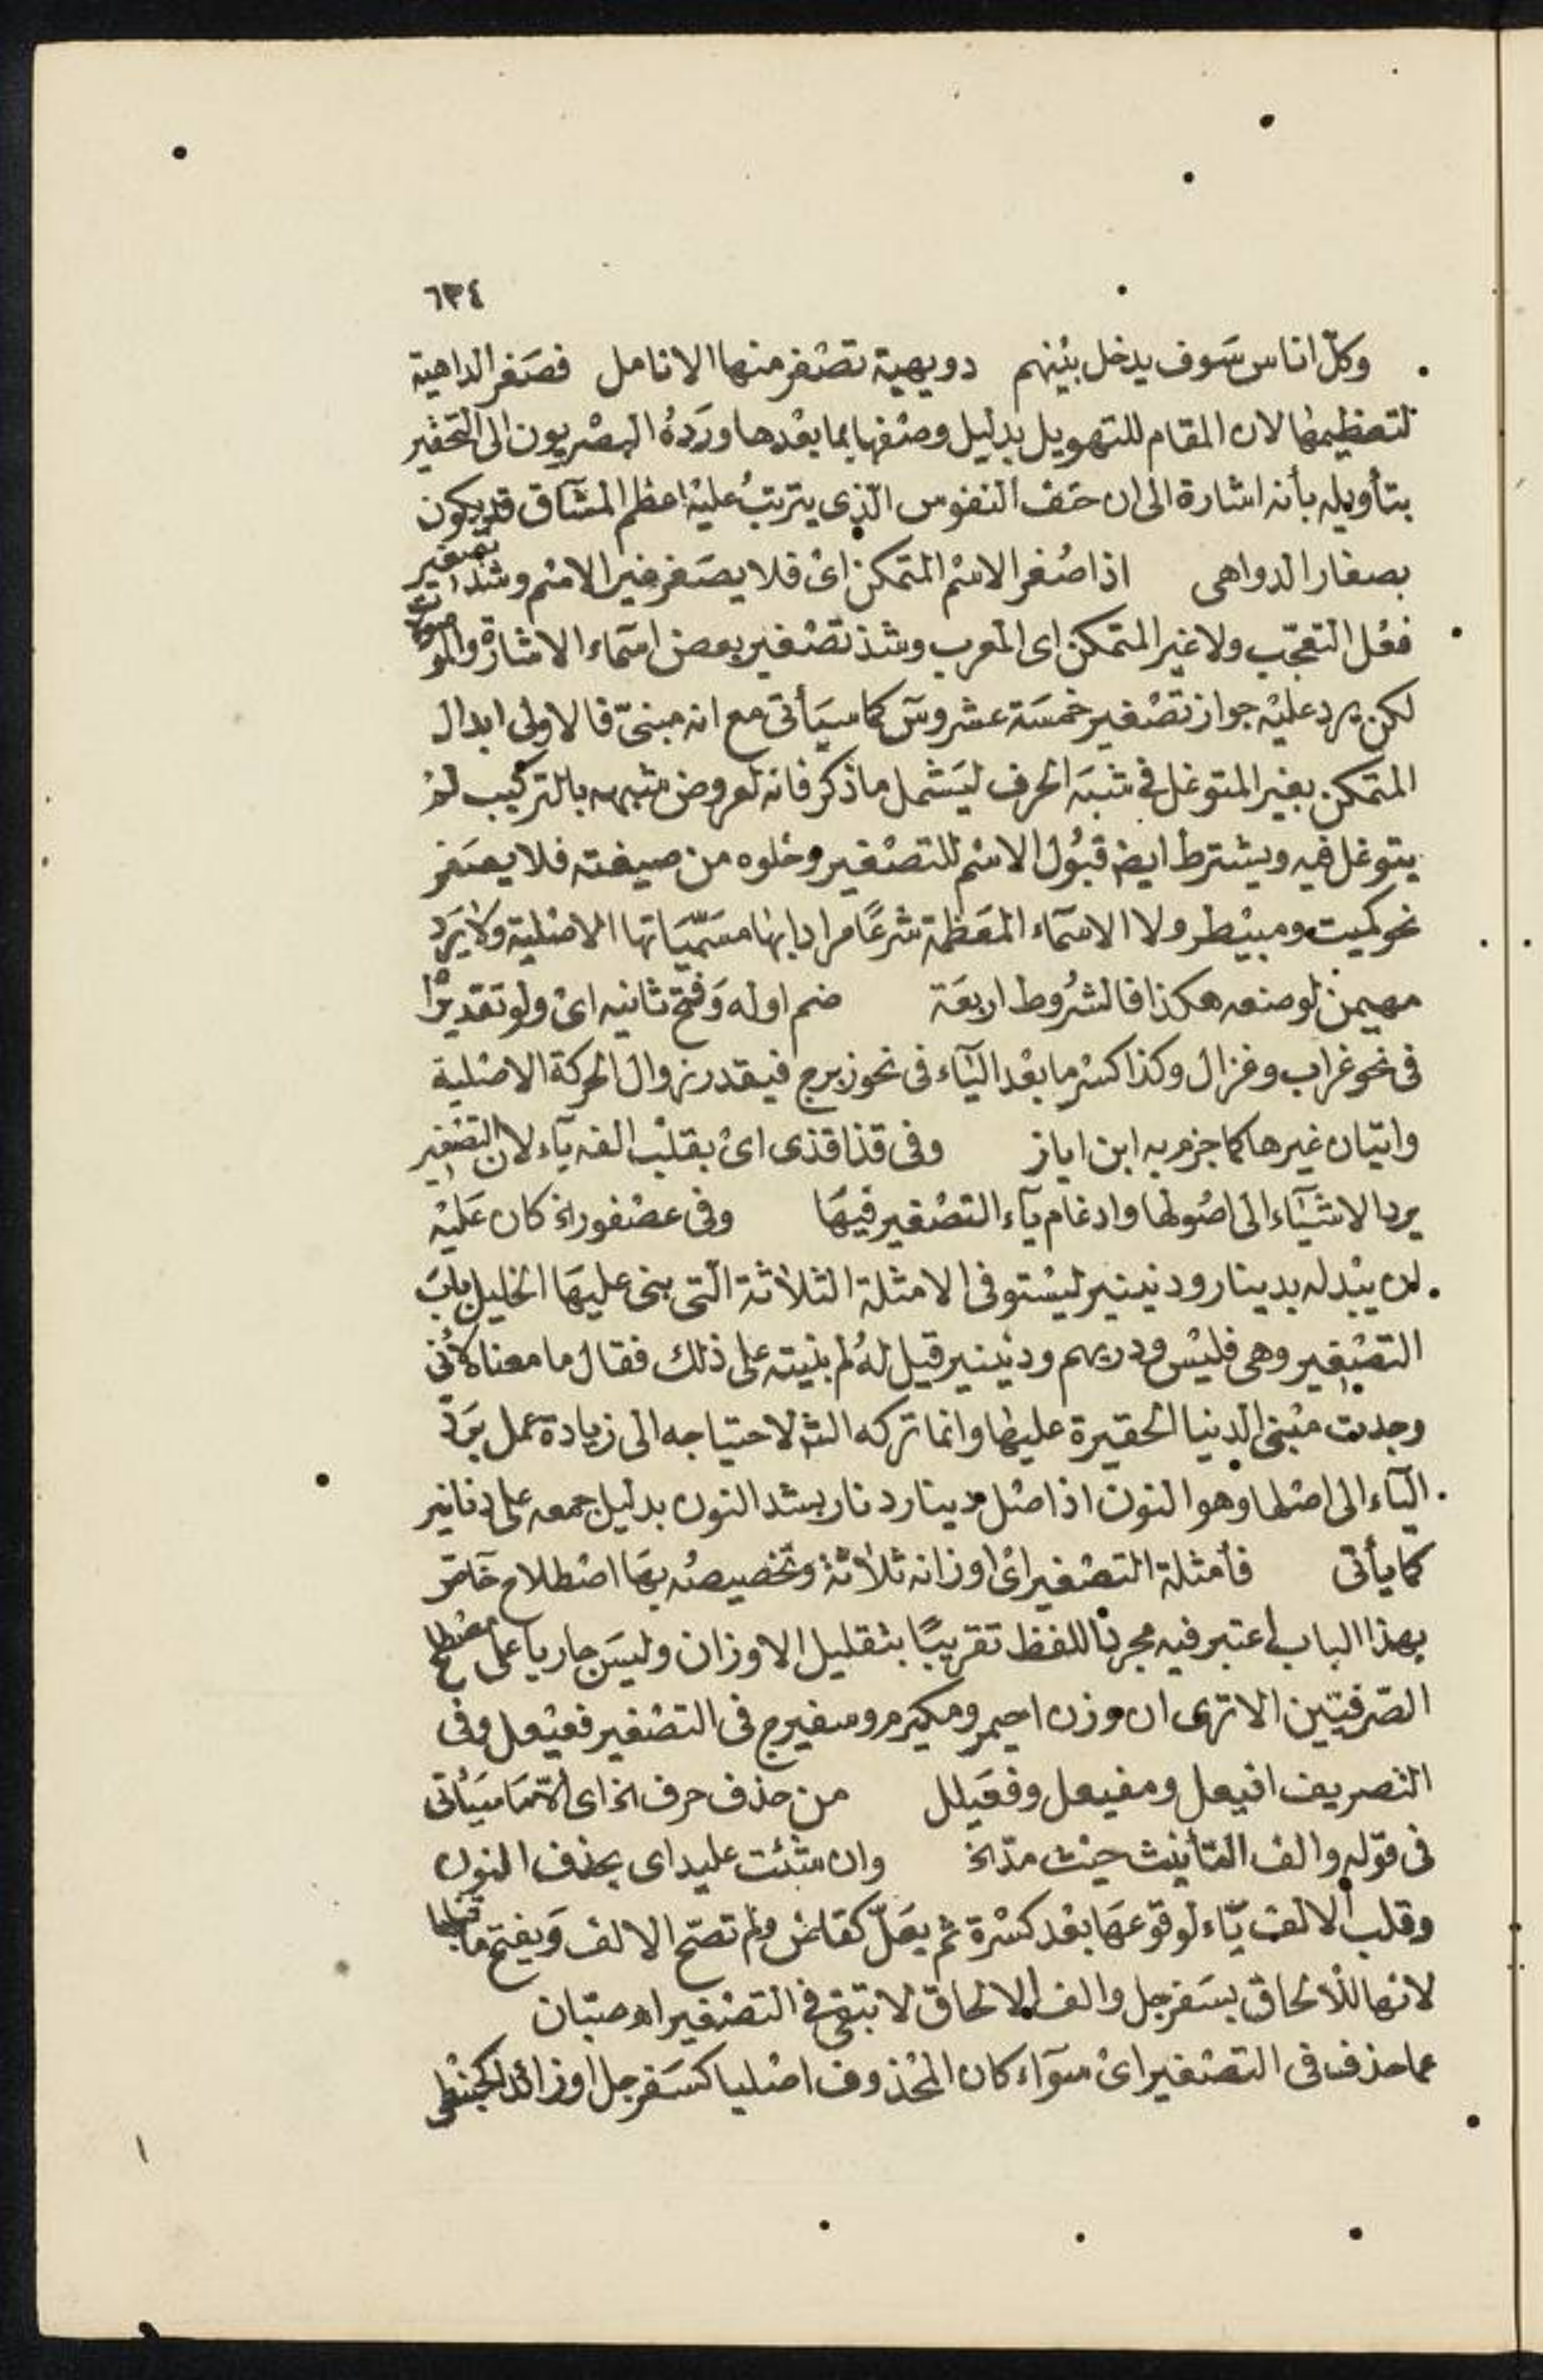 ٦٣٤
وكلّ اناس سَوف يدخل بيْنهم دويهية تصْفر منها الانامل فصَغر الداهية
لتعظيمها لان المقام للتهويل بدليل وصْفها بما بعْدها ورَدهُ البصْريون الى التحقير
بتأويله بأنه اشارة الى ان حتف النفوس الّذى يترتبُ عليْه اعظم المشآق قد يكون
بصغار الدواهى اذا صُغر الاسْم المتمكن اىْ فلا يصَغر غير الاسْم وشذ تصغير
فعْل التعجّب ولا غير المتمكن اى المعرب وشذ تصْغير بعض اسمآء الاشارة والموصولات
لكن يرد عليْه جواز تصْغير خمسَة عشر وسَ كما سيَأتى مع انه مبنىّ فالاولى ابدال
المتمكن بغير المتوغل فى شبَه الحرف ليَشمل ما ذكر فانه لعروض شبهه بالتركيب لمْ
يتوغل فيه ويشترط ايضا قبُول الاسْم للتصْغير وخلوه من صيغته فلا يصَغر
نحو كميت ومبيْطر ولا الاسمآء المعَظمة شرعًا مرادا بها مسَمّيَاتها الاصْلية ولا يَرد
مهيمن لوضعه هكذا فالشرُوط اربعَة ضم اوله وَفتح ثانيه اىْ ولو تقديْرا
فى نحو غراب وغزال وكذا كسْر ما بعْد اليآء فى نحو زبرج فيقدر زوال الحركة الاصْلية
واتيان غيرها كما جزم به ابن اياز وفى قذا قذى اىْ بقلْب الفه يآء لان التصْغير
يرد الاشيَآء الى اصُولها وادغام يآء التصْغير فيهَا وفى عصْفور اذ كان عَليْه
ان يبْدله بدينار ودنينير ليسْتوفى الامثلة الثلاثة الّتى بنى عليهَا الخليل بابَ
التصْغير وهى فليْس ودريهم ودنينير قيل لهُ لم بنيته على ذلك فقال ما معناه لأنى
وجدت مبْنى الدنيا الحقيرة عليها وانما تركه الش لاحتياجه الى زيادة عمل برَد
اليآء الى اصْلها وهو النون اذ اصْل دينار دنار بشد النون بدليل جمعه على دنانير
كما يأتى فأمثلة التصْغير اىْ اوزانه ثلاثة وتخصيصُه بهَا اصْطلاح خآص
بهذا الباب اعتبر فيه مجرد اللفظ تقريبًا بتقليل الاوزان وليسَ جاريا على مصْطلح
الصّرفيّين الا ترى ان وزن احيمر ومكيرم وسفيرج فى التصْغير فعيْعل وفى
التصريف افيعل ومفيعل وفعَيلل من حذف حرف الخ اى الا مَا سيَأتى
فى قوْله والف التأنيث حيْث مدّ الخ وان شئت عليد اى بحذف النون
وقلب الالف يّاء لوقوعهَا بعْد كسْرة ثم يعَلّ كقاض ولم تصَح الالف وَيفتح ما قبلها
لانها للالحاق بسَفرجل والف الالحاق لا تبقى فى التصْغير اه صبّان
عما حذف فى التصْغير اىْ سوآء كان المحْذوف اصْليا كسَفرجل اوزائدا كحبنْطى